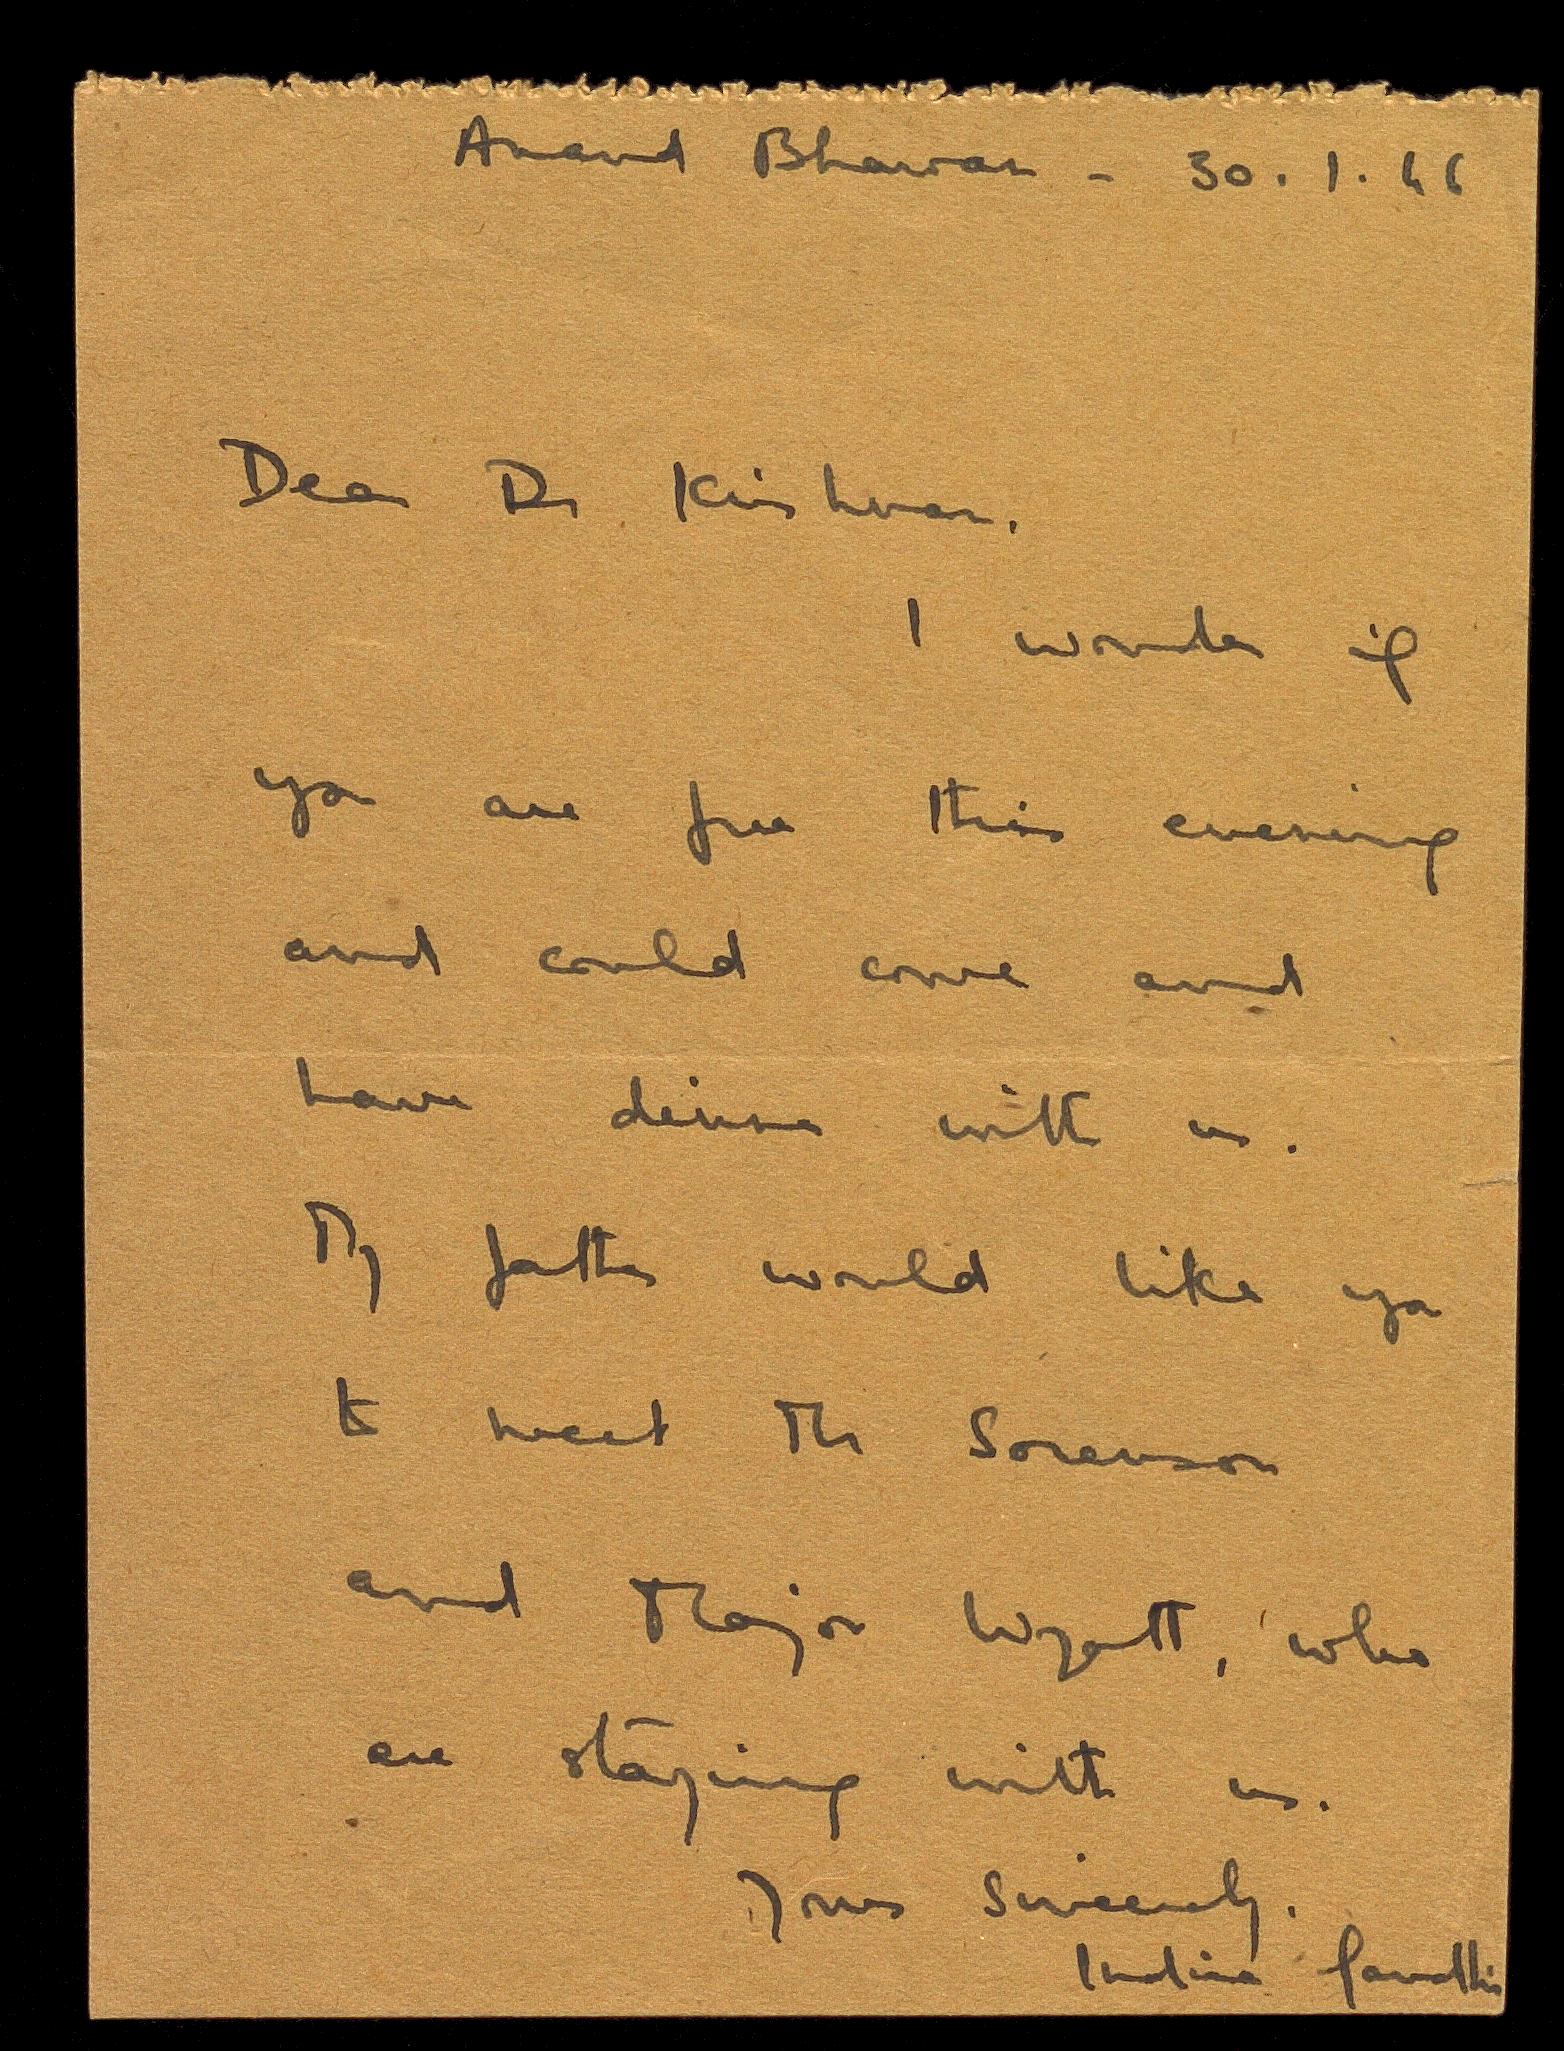 Anand Bhawan - 30.1.46
Dear Dr Krishnan.
I wonder if
you are free this evening
and could come and
have dinner with us.
My father would like you
to meet Mr Sorenson
and Major Wyatt, who
are staying with us.
Yours Sincerely.
Indira Gandhi